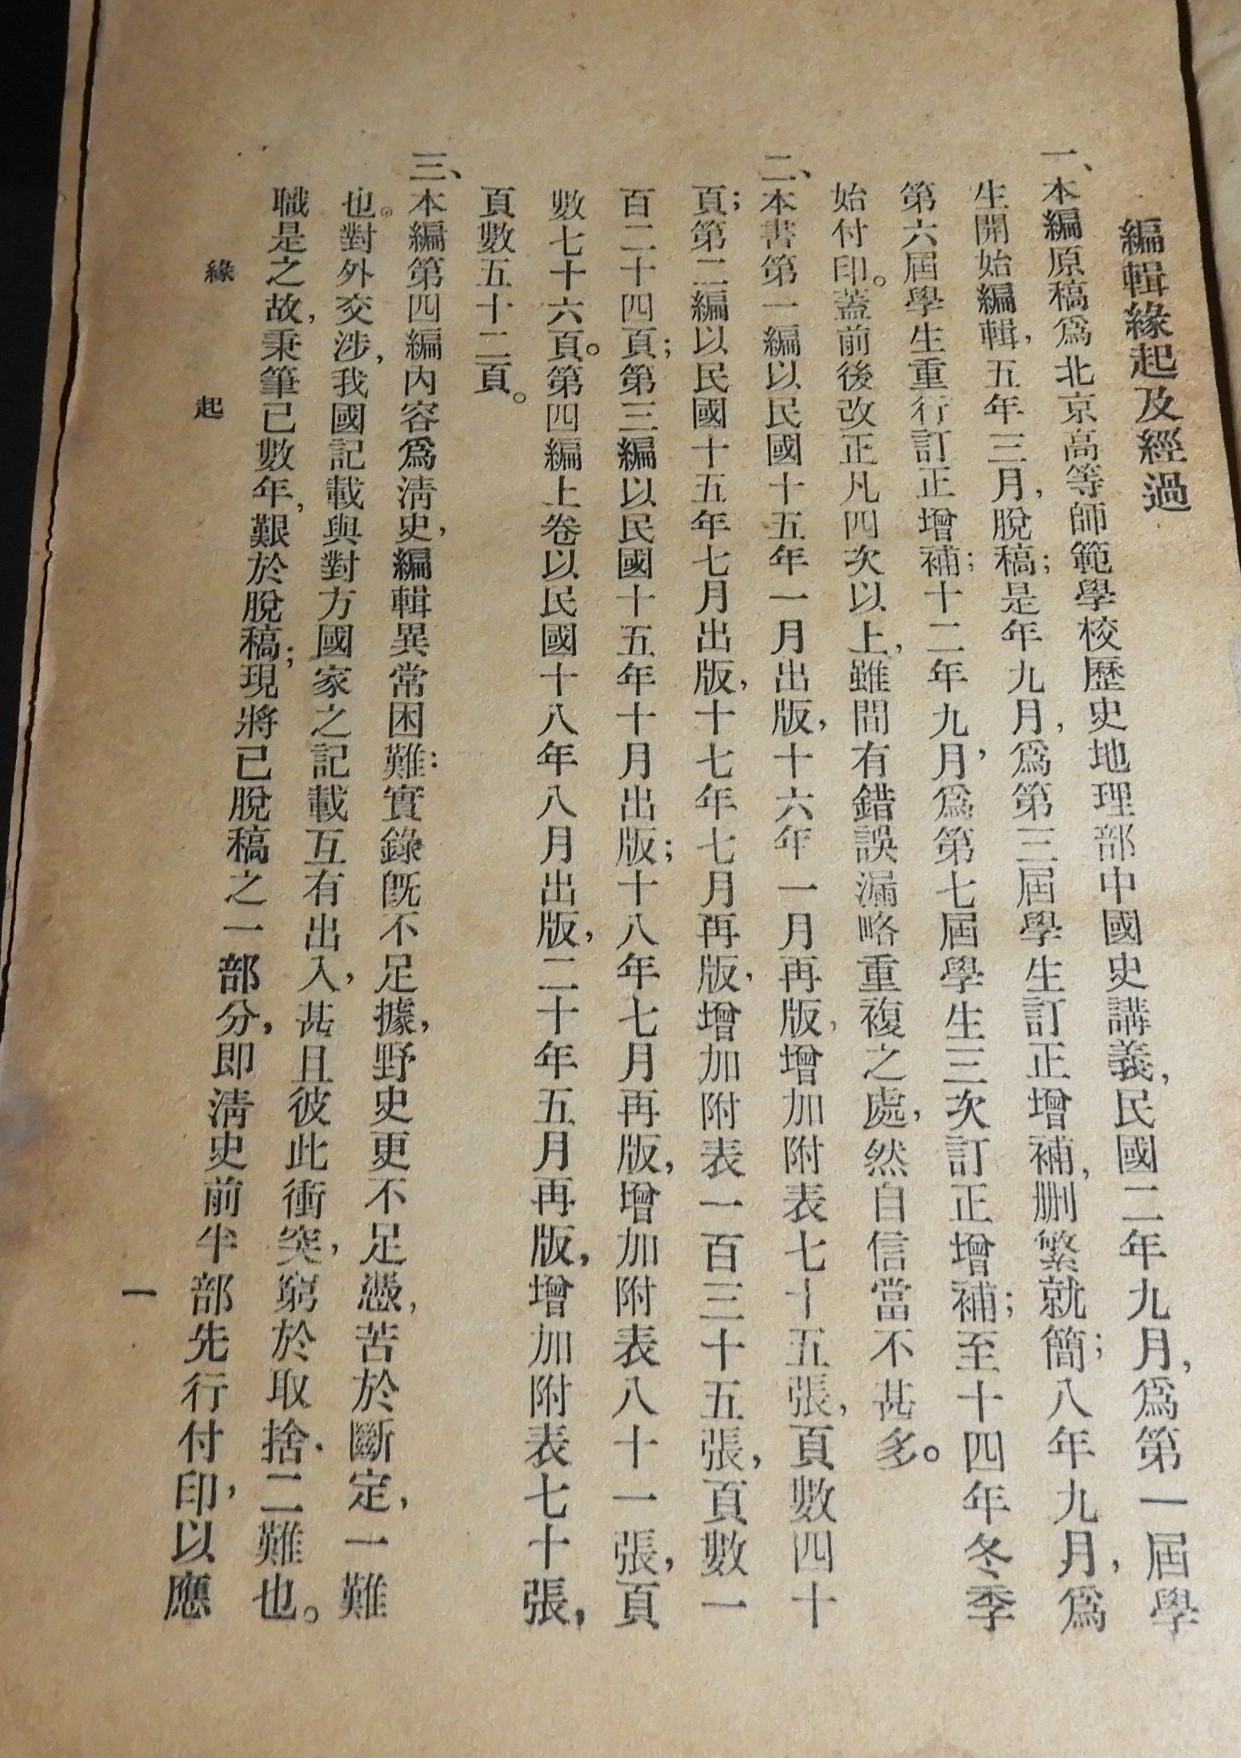 編輯緣起及經過
一、本編原稿爲北京高等師範學校歷史地理部中國史講義，民國二年九月，爲第一屆學
生開始編輯，五年三月，脫稿；是年九月，爲第三屆學生訂正增補，刪繁就簡；八年九月，爲
第六屆學生重行訂正增補；十二年九月，爲第七屆學生三次訂正增補；至十四年冬季
始付印。蓋前後改正凡四次以上，雖間有錯誤漏略重複之處，然自信當不甚多。
二、本書第一編以民國十五年一月出版，十六年一月再版，增加附表七十五張，頁數四十
頁；第二編以民國十五年七月出版，十七年七月再版，增加附表一百三十五張，頁數一
百二十四頁；第三編以民國十五年十月出版；十八年七月再版，增加附表八十一張，頁
數七十六頁。第四編上卷以民國十八年八月出版，二十年五月再版，增加附表七十張，
頁數五十二頁。
三、本編第四編內容爲淸史，編輯異常困難：實錄旣不足據，野史更不足憑，苦於斷定，一難
也。對外交涉，我國記載與對方國家之記載互有出入，甚且彼此衝突，窮於取捨，二難也。
職是之故，秉筆已數年，艱於脫稿；現將已脫稿之一部分，即淸史前半部先行付印，以應
緣起
一